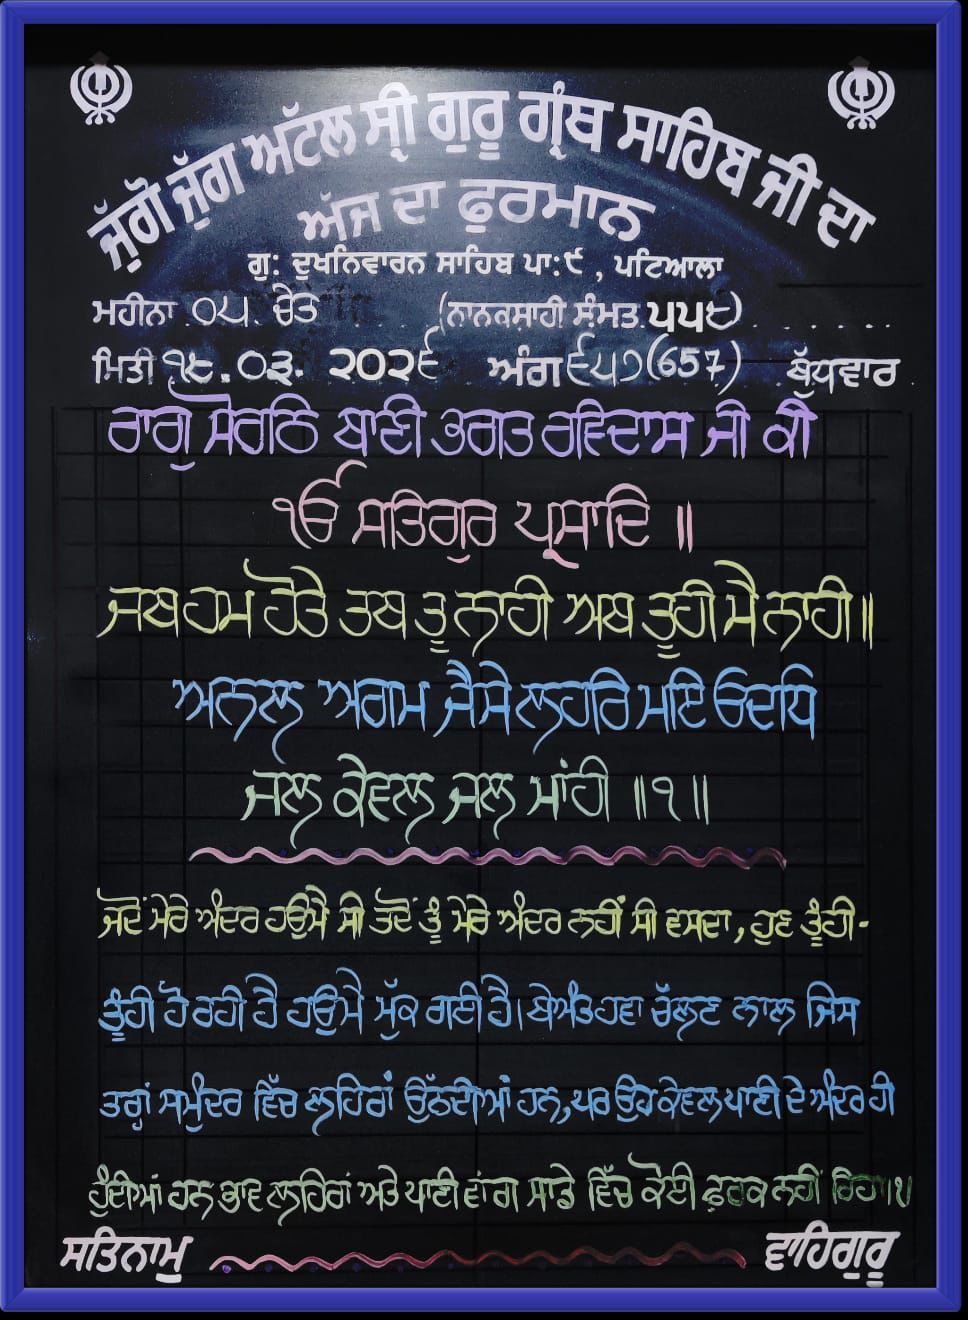 ਜੁੱਗੋ ਜੁੱਗ ਅਟੱਲ ਸ੍ਰੀ ਗੁਰੂ ਗ੍ਰੰਥ ਸਾਹਿਬ ਜੀ ਦਾ
ਅੱਜ ਦਾ ਫੁਰਮਾਨ
ਗੁ: ਦੁਖਨਿਵਾਰਨ ਸਾਹਿਬ ਪਾ:੯ , ਪਟਿਆਲਾ
ਮਹੀਨਾ ੦੫ ਚੇਤ (ਨਾਨਕਸ਼ਾਹੀ ਸੰਮਤ ੫੫੮)
ਮਿਤੀ ੧੮.੦੩. ੨੦੨੬ ਅੰਗ ੬੫੭(657) ਬੁੱਧਵਾਰ
ਰਾਗੁ ਸੋਰਠਿ ਬਾਣੀ ਭਗਤ ਰਵਿਦਾਸ ਜੀ ਕੀ
ੴ ਸਤਿਗੁਰ ਪ੍ਰਸਾਦਿ ॥
ਜਬ ਹਮ ਹੋਤੇ ਤਬ ਤੂ ਨਾਹੀ ਅਬ ਤੂਹੀ ਮੈ ਨਾਹੀ॥
ਅਨਲ ਅਗਮ ਜੈਸੇ ਲਹਰਿ ਮਇ ਓਦਧਿ
ਜਲ ਕੇਵਲ ਜਲ ਮਾਂਹੀ ॥੧॥
ਜਦੋਂ ਮੇਰੇ ਅੰਦਰ ਹਉਮੈ ਸੀ ਤਦੋਂ ਤੂੰ ਮੇਰੇ ਅੰਦਰ ਨਹੀਂ ਸੀ ਵਸਦਾ, ਹੁਣ ਤੂੰਹੀ-
ਤੂੰਹੀ ਹੋ ਰਹੀ ਹੈ ਹਉਮੈ ਮੁੱਕ ਗਈ ਹੈ। ਬੇਅੰਤ ਹਵਾ ਚੱਲਣ ਨਾਲ ਜਿਸ
ਤਰ੍ਹਾਂ ਸਮੁੰਦਰ ਵਿੱਚ ਲਹਿਰਾਂ ਉੱਠਦੀਆਂ ਹਨ, ਪਰ ਉਹ ਕੇਵਲ ਪਾਣੀ ਦੇ ਅੰਦਰ ਹੀ
ਹੁੰਦੀਆਂ ਹਨ ਭਾਵ ਲਹਿਰਾਂ ਅਤੇ ਪਾਣੀ ਵਾਂਗ ਸਾਡੇ ਵਿੱਚ ਕੋਈ ਫ਼ਰਕ ਨਹੀਂ ਰਿਹਾ।੧
ਸਤਿਨਾਮੁ ਵਾਹਿਗੁਰੂ